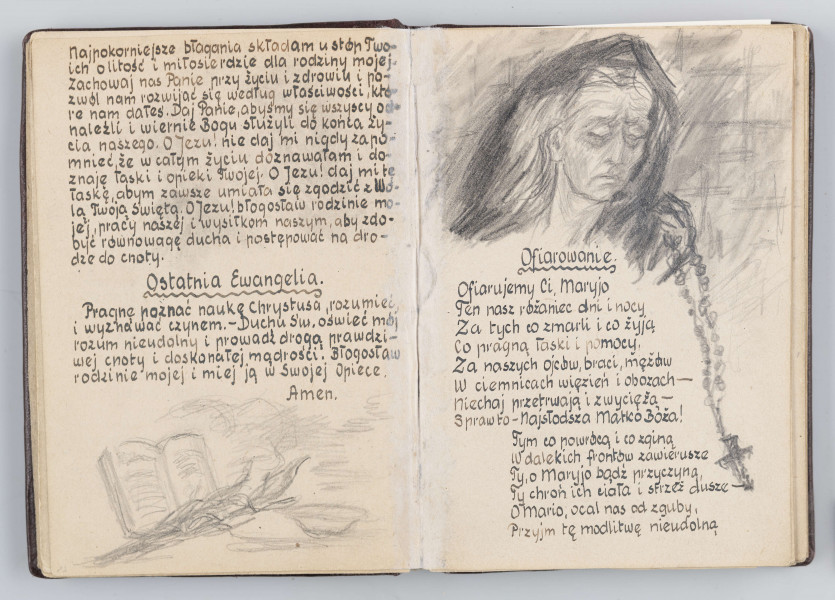 Najpokorniejsze błagania składam u stóp Two-
ich o litość i miłosierdzie dla rodziny mojej.
Zachowaj nas Panie przy życiu i zdrowiu i po-
zwól nam rozwijać się według właściwości, któ-
re nam dałeś. Daj Panie, abyśmy się wszyscy od-
naleźli i wiernie Bogu służyli do końca ży-
cia naszego. O Jezu! nie daj mi nigdy zapo-
mnieć, że w całym życiu doznawałam i do-
znaję łaski i opieki Twojej. O Jezu! daj mi tę
łaskę, abym zawsze umiała się zgodzić z Wo-
lą Twoją Świętą. O Jezu! błogosław rodzinie mo-
jej, pracy naszej i wysiłkom naszym, aby zdo-
być równowagę ducha i postępować na dro-
dze do cnoty.
Ostatnia Ewangelia.
Pragnę poznać naukę Chrystusa, rozumieć
i wyznawać czynem. – Duchu Św. oświeć mój
rozum nieudolny i prowadź drogą prawdzi-
wej cnoty i doskonałej mądrości. Błogosław
rodzinie mojej i miej ją w Swojej Opiece.
Amen.
Ofiarowanie.
Ofiarujemy Ci, Maryjo
Ten nasz różaniec dni i nocy
Za tych co zmarli i co żyją
Co pragną łaski i pomocy.
Za naszych ojców, braci, mężów
W ciemnicach więzień i obozach —
Niechaj przetrwają i zwyciężą —
Spraw to – Najsłodsza Matko Boża!
Tym co powrócą i co zginą
W dalekich frontów zawierusze
Ty, o Maryjo bądź przyczyną,
Ty chroń ich ciała i strzeż dusze —
O Mario, ocal nas od zguby,
Przyjm tę modlitwę nieudolną